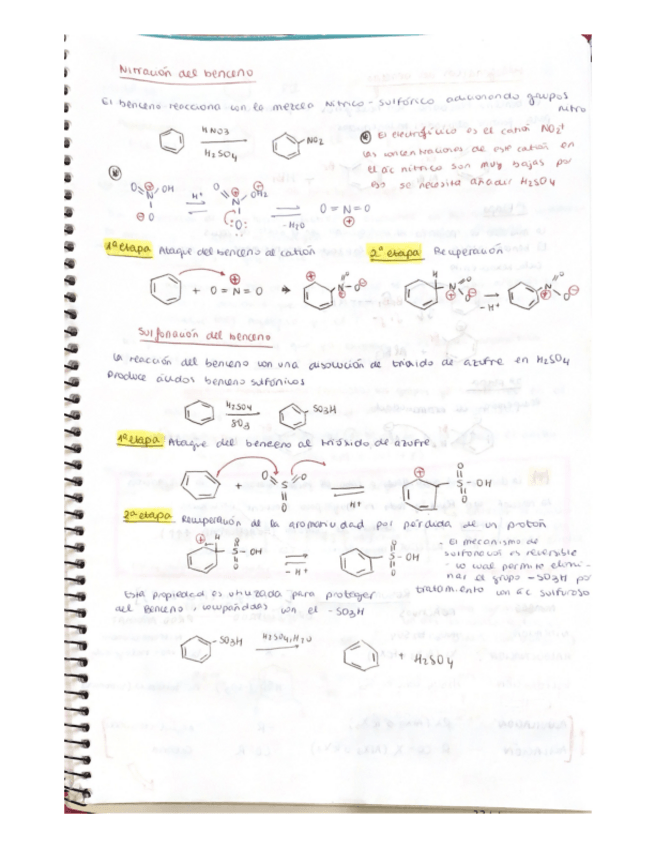 Nitración del benceno
El benceno reacciona con la mezcla nitrico-sulfúrico adicionando grupos
nitro
HNO3
H2SO4
NO2
* El electrofílico es el catión NO2+
las concentraciones de este catión en
el ác nítrico son muy bajas por
eso se necesita añadir H2SO4
O N OH O H+ O N OH2 O -H2O O=N=O
1ª etapa Ataque del benceno al catión
2ª etapa Recuperación
+ O=N=O → N O O
H N O O → -H+ N O O
Sulfonación del benceno
La reacción del benceno con una disolución de trióxido de azufre en H2SO4
produce ácidos benceno sulfónicos
H2SO4
SO3
SO3H
1ª etapa Ataque del benceno al trióxido de azufre
+ O S O O H+ O S OH O
2ª etapa Recuperación de la aromaticidad por pérdida de un protón
H O S OH O -H+ O S OH O
- El mecanismo de
sulfonación es reversible
- lo cual permite elimi-
nar el grupo -SO3H por
tratamiento con ác sulfuroso
Esta propiedad es utilizada para proteger
del benceno, con el -SO3H
SO3H H2SO4, H2O → + H2SO4